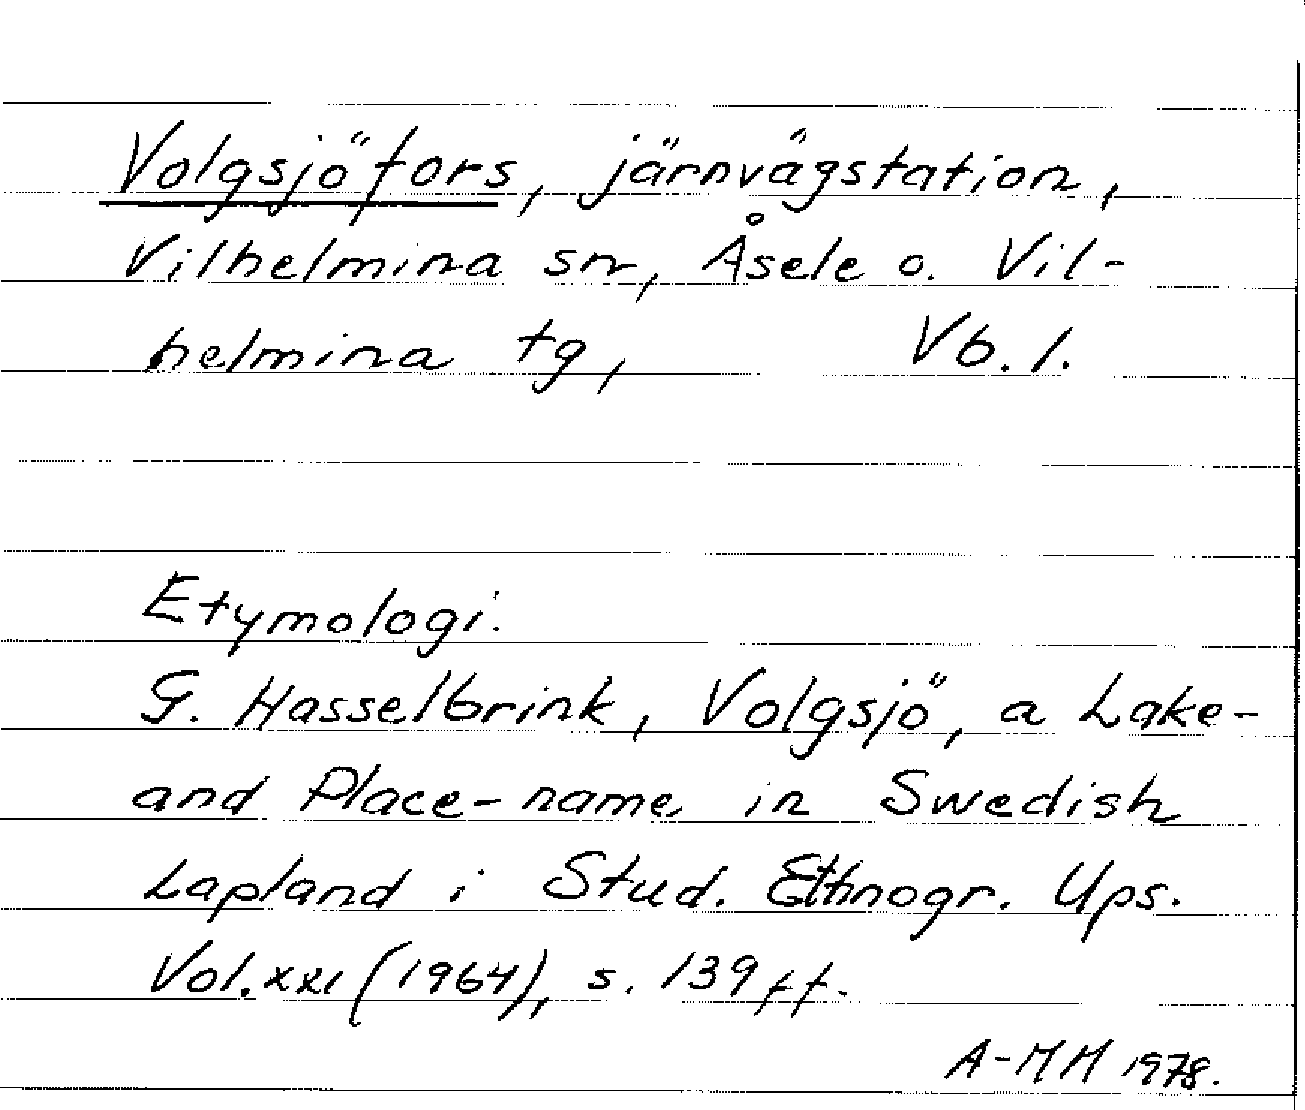 Volgsjöfors, järnvägstation,
Vilhelmina sn, Åsele o. Vil-
helmina tg, Vb. l.
Etymologi:
G. Hasselbrink, Volgsjö, a Lake-
and Place-name in Swedish
Lapland i Stud. Ethnogr. Ups.
Vol. XXI (1964), s. 139 ff.
A-MM 1978.